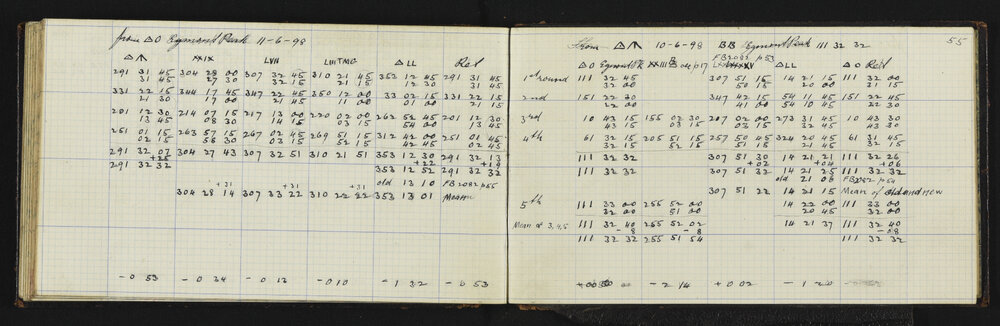 from △O Egmont Park 11-6-98
△Λ XXIX LVII LVIITMG △LL Ref
291 31 45 304 28 00 307 32 45 310 21 45 352 12 45 291 31 45
31 45 27 30 32 15 21 15 12 30 31 15
331 22 15 344 17 45 347 22 45 350 12 00 33 02 15 331 22 15
21 30 17 00 21 45 11 00 01 00 21 15
201 12 30 214 07 15 217 13 00 220 02 00 262 52 45 201 12 30
13 45 08 30 14 15 03 15 54 00 13 45
251 01 15 263 57 15 267 02 45 269 51 15 312 42 00 251 01 45
02 15 58 30 03 15 52 15 42 45 02 45
291 32 07 304 27 43 307 32 51 310 21 51 353 12 30 291 32 13
+25 +22 +19
291 32 32 353 12 52 291 32 32
old 13 10 FB2082 p55
+31 +31 +31
304 28 14 307 33 22 310 22 22 353 13 01 Mean
-0 53 -0 34 -0 13 -0 10 -1 32 -0 53
55
From △Λ 10-6-98 BB Egmont Park 111 32 32
FB2082 p53
△O Egmont Pk XXIII old p17 △LL △O Ref
1st round 111 32 45 307 51 15 14 21 15 111 32 00
32 00 50 15 20 00 31 15
2nd 151 22 30 347 42 15 54 11 45 151 22 45
22 00 41 00 10 45 22 30
3rd 10 43 15 155 02 30 207 02 00 273 31 45 10 43 00
43 15 03 15 03 15 32 00 43 30
4th 61 32 15 205 51 15 257 50 45 324 20 45 61 31 45
32 15 52 15 51 15 21 45 32 15
111 32 32 307 51 30 14 21 21 111 32 26
+02 +04 +06
111 32 32 307 51 32 14 21 25 111 32 32
old 21 08 FB2082 p54
307 51 22 14 21 15 Mean of old and new
5th 111 33 00 255 52 00 14 22 00 111 33 00
32 00 51 00 20 45 32 00
Mean of 3,4,5 111 32 40 255 52 02 14 21 37 111 32 40
-8 -8 -08
111 32 32 255 51 54 111 32 32
-2 14 +0 02